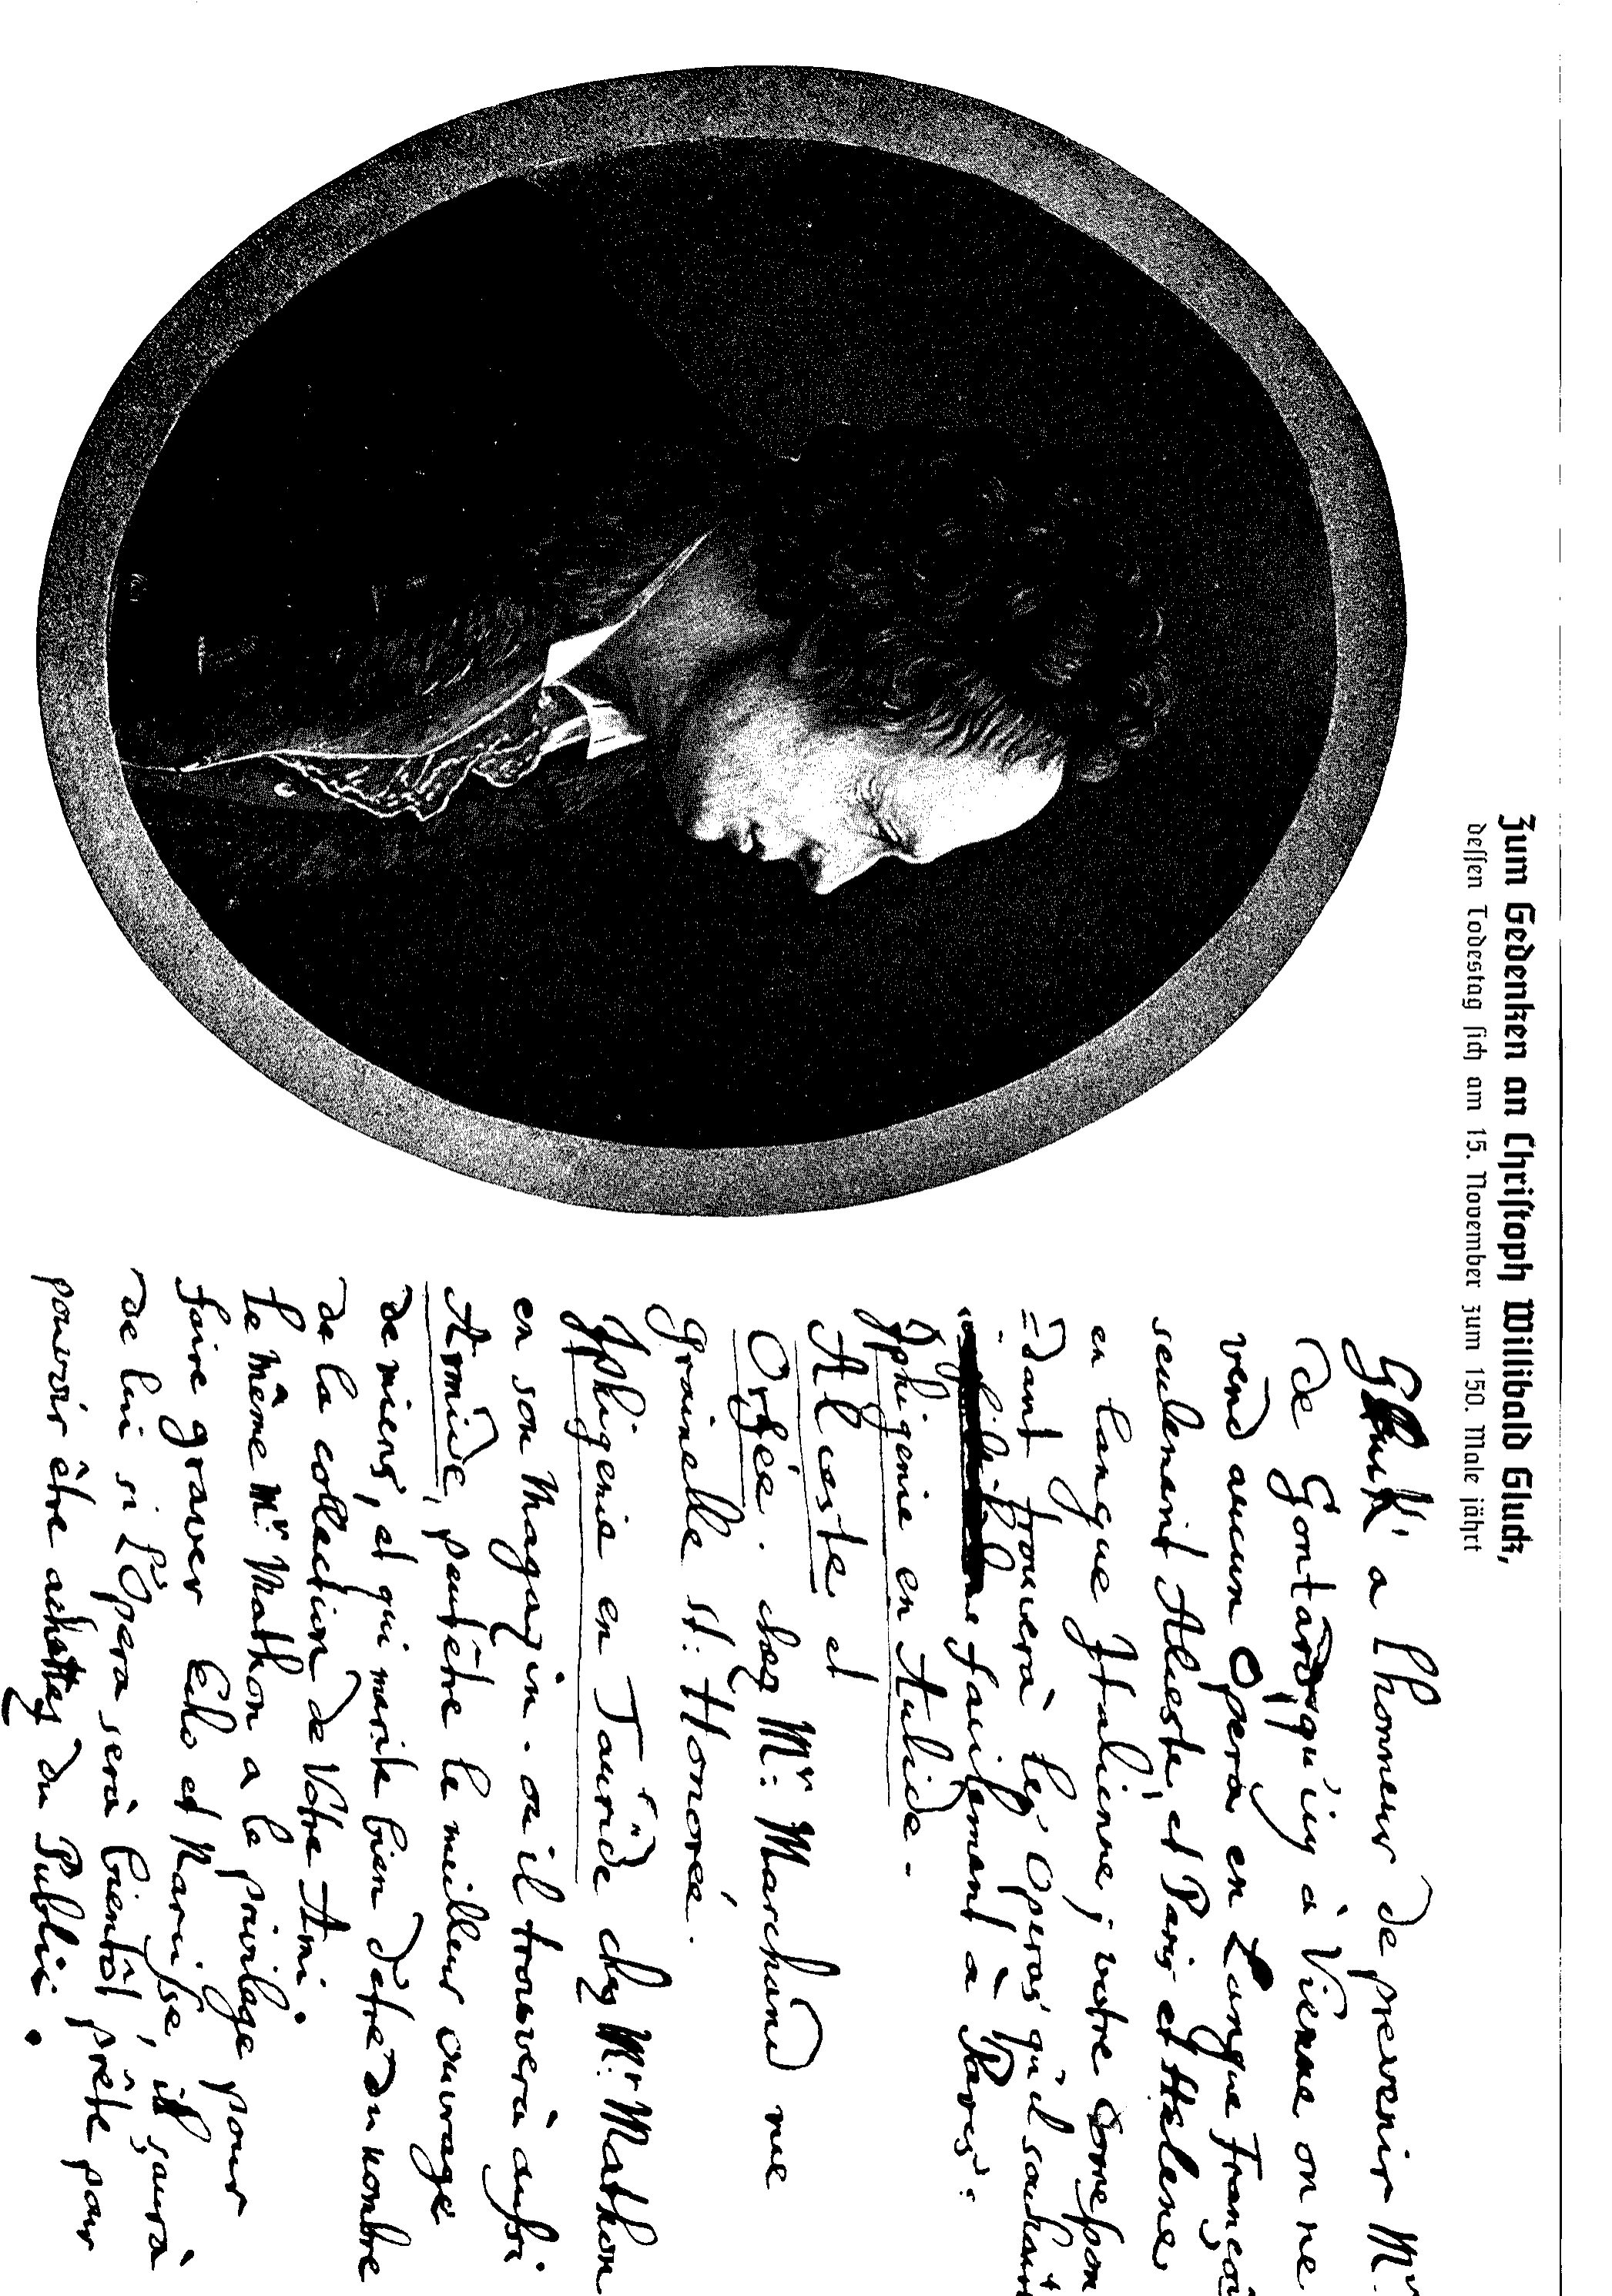 Zum Gedenken an Christoph Willibald Gluck,
dessen Todestag sich am 15. November zum 150. Male jährt
Gluck a l'honneur de prevenir Mr.
de Gontard, qu'icy à Vienne on ne
vend aucun Opera en Langue françoi
seulement Alceste, et Paris et Helene
en langue Italienne; votre Correspon
=dant trouverà les Operas qu'il souhaitt
facilement à Paris:
Iphigenie en Aulide.
Alceste et
Orfée. chez Mr: Marchand rue
Grainelle st: Honoré.
Iphigenie en Tauride chez Mr: Mathon
en son Magazin. ou il trouverà aussi
Armide, peutêtre le meilleur ouvrage
de miens, et qui merite bien d'etre du nombre
de la collection de Votre Ami.
Le même Mr: Mathon a le privilage pour
faire graver Echo et Narcisse, il saurà
de lui si l'Opera serà bientôt prête pour
pouvoir être achettez du Public.